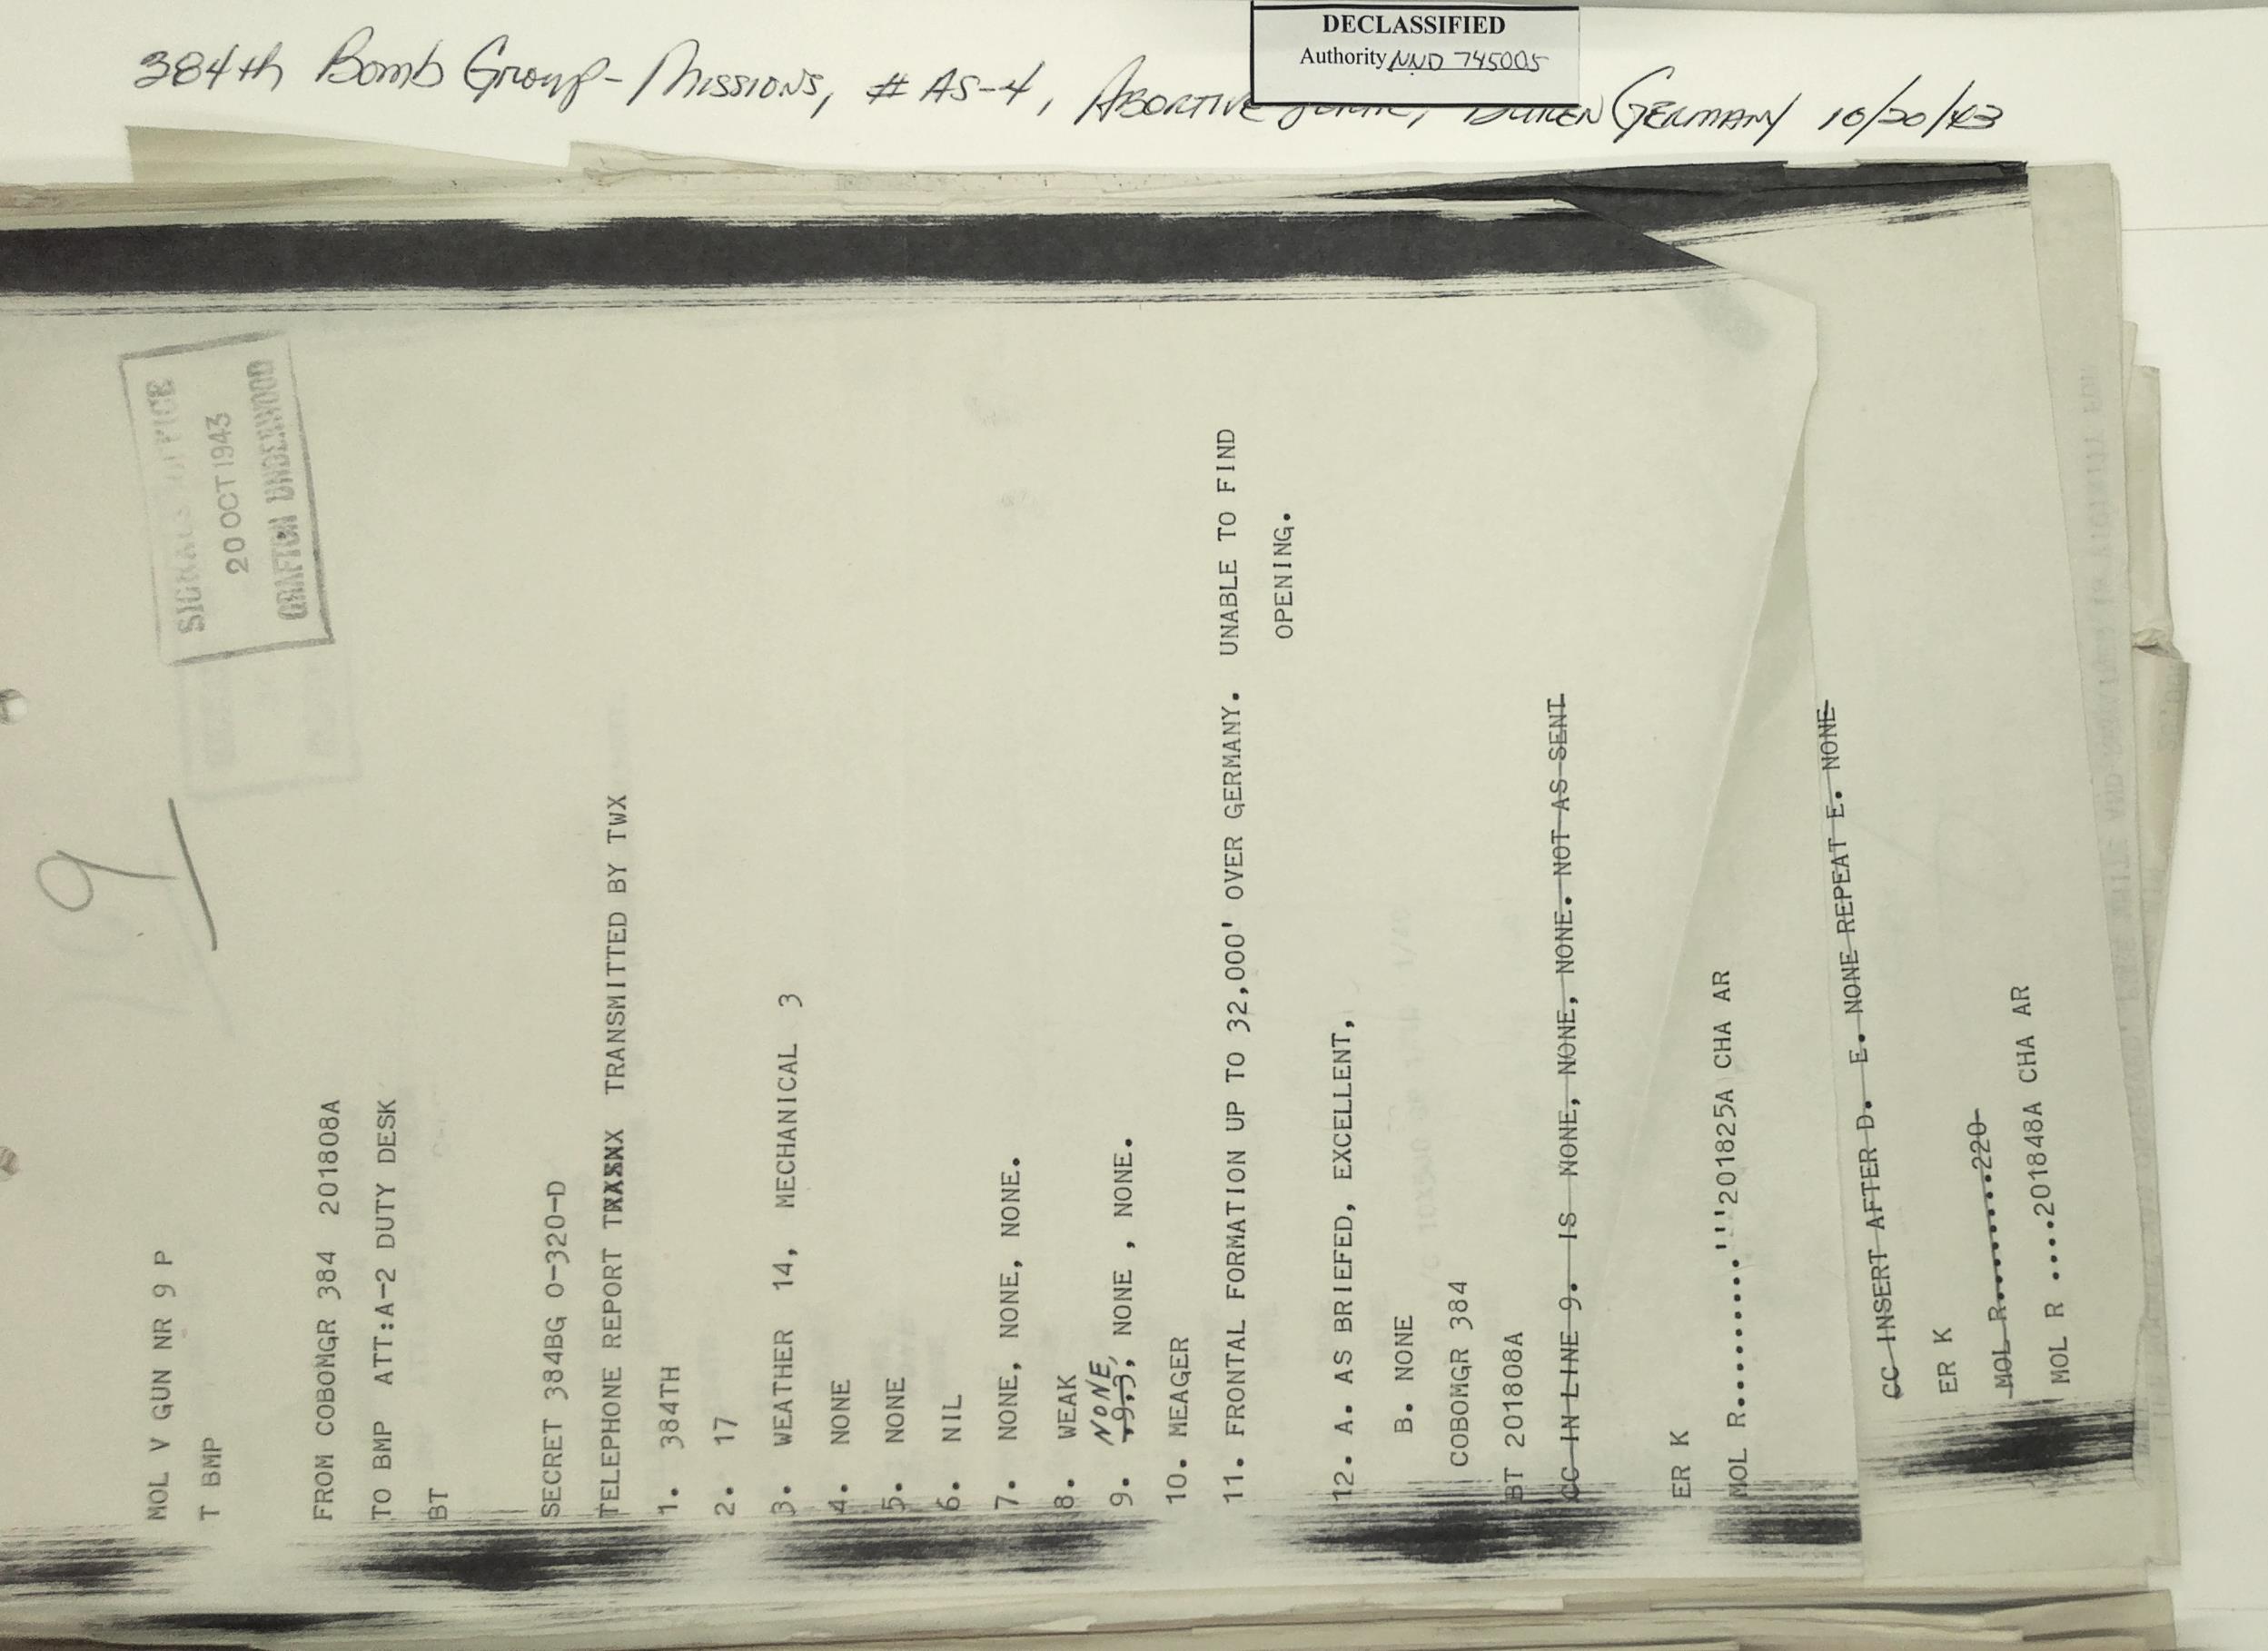 DECLASSIFIED
Authority NND 745005
384th Bomb Group - Missions, # AS-4, Abortive Germany 10/20/43
SIGNALS OFFICE
20 OCT 1943
GRAFTON UNDERWOOD
9
MOL V GUN NR 9 P
T BMP
FROM COBOMGR 384 201808A
TO BMP ATT:A-2 DUTY DESK
BT
SECRET 384BG O-320-D
TELEPHONE REPORT TRANSMITTED BY TWX
1. 384TH
2. 17
3. WEATHER 14, MECHANICAL 3
4. NONE
5. NONE
6. NIL
7. NONE, NONE, NONE.
8. WEAK
9. NONE, NONE , NONE.
10. MEAGER
11. FRONTAL FORMATION UP TO 32,000' OVER GERMANY. UNABLE TO FIND
OPENING.
12. A. AS BRIEFED, EXCELLENT,
B. NONE
COBOMGR 384
BT 201808A
CC IN LINE 9. IS NONE, NONE, NONE. NOT AS SENT
ER K
MOL R.........'''201825A CHA AR
CC INSERT AFTER D. E. NONE REPEAT E. NONE
ER K
MOL R.........220
MOL R ....201848A CHA AR